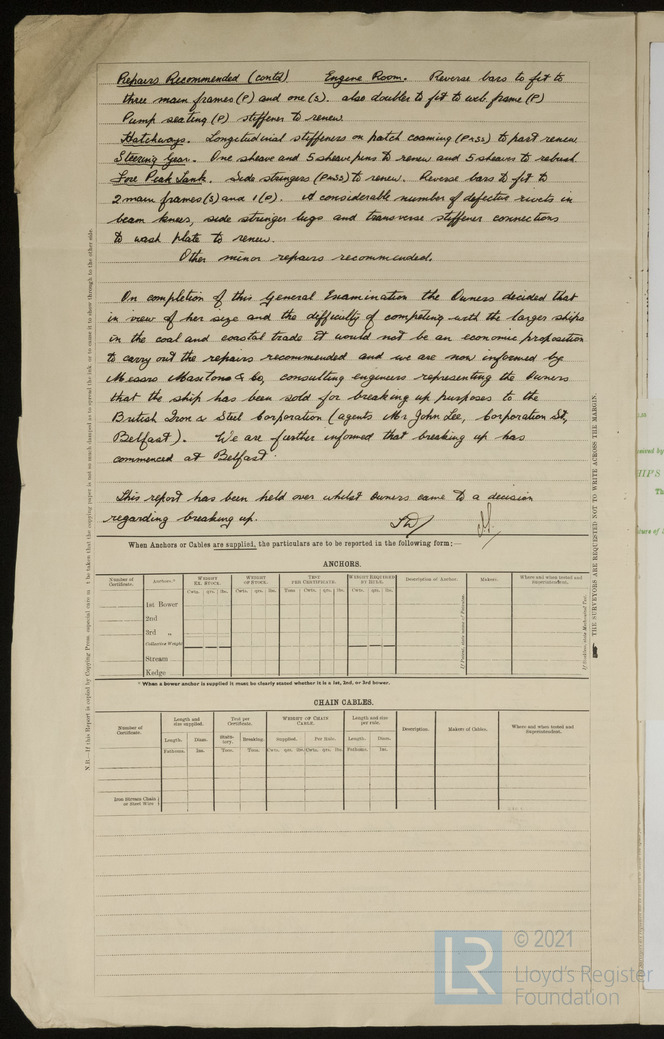 Repairs Recommended (contd) Engine Room. Reverse bars to fit to
three main frames (P) and one (S). also doubler to fit to web frame (P)
Pump seating (P) stiffener to renew.
Hatchways. Longitudinal stiffeners on hatch coaming (P&SS) to part renew
Steering Gear. One sheave and 5 sheave pins to renew and 5 sheaves to rebush.
Fore Peak Tank. Side stringers (P&SS) to renew. Reverse bars to fit to
2 main frames (S) and 1 (P). A considerable number of defective rivets in
beam knees, side stringer lugs and transverse stiffener connections
to wash plate to renew.
Other minor repairs recommended.
On completion of this General Examination the Owners decided that
in view of her size and the difficulty of competing with the larger ships
in the coal and coastal trade it would not be an economic proposition
to carry out the repairs recommended and we are now informed by
Messrs Mastons & Co, consulting engineers representing the Owners
that the ship has been sold for breaking up purposes to the
British Iron & Steel Corporation (agents Mr John Lee, Corporation St,
Belfast). We are further informed that breaking up has
commenced at Belfast.
This report has been held over whilst Owners came to a decision
regarding breaking up.
When Anchors or Cables are supplied, the particulars are to be reported in the following form:—
ANCHORS.
Number of Certificate. Anchors.* WEIGHT EX. STOCK. WEIGHT OF STOCK. TEST PER CERTIFICATE. WEIGHT REQUIRED BY RULE. Description of Anchor. Makers. Where and when tested and Superintendent.
Cwts. qrs. lbs. Cwts. qrs. lbs. Tons Cwts. qrs. lbs. Cwts. qrs. lbs.
1st Bower
2nd
3rd „
Collective Weight
Stream
Kedge
* When a bower anchor is supplied it must be clearly stated whether it is a 1st, 2nd, or 3rd bower.
CHAIN CABLES.
Number of Certificate. Length and size supplied. Test per Certificate. WEIGHT OF CHAIN CABLE. Length and size per rule. Description. Makers of Cables. Where and when tested and Superintendent.
Length. Diam. Statutory. Breaking. Supplied. Per Rule. Length. Diam.
Fathoms. Ins. Tons. Tons. Cwts. qrs. lbs. Cwts. qrs. lbs. Fathoms. Ins.
Iron Stream Chain or Steel Wire
THE SURVEYORS ARE REQUESTED NOT TO WRITE ACROSS THE MARGIN.
LR
© 2021
Lloyd's Register
Foundation